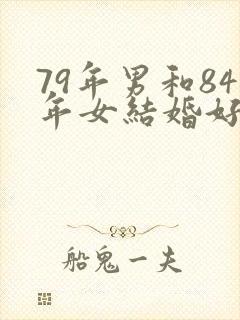 79年男和84
年女結婚好
船鬼一夫